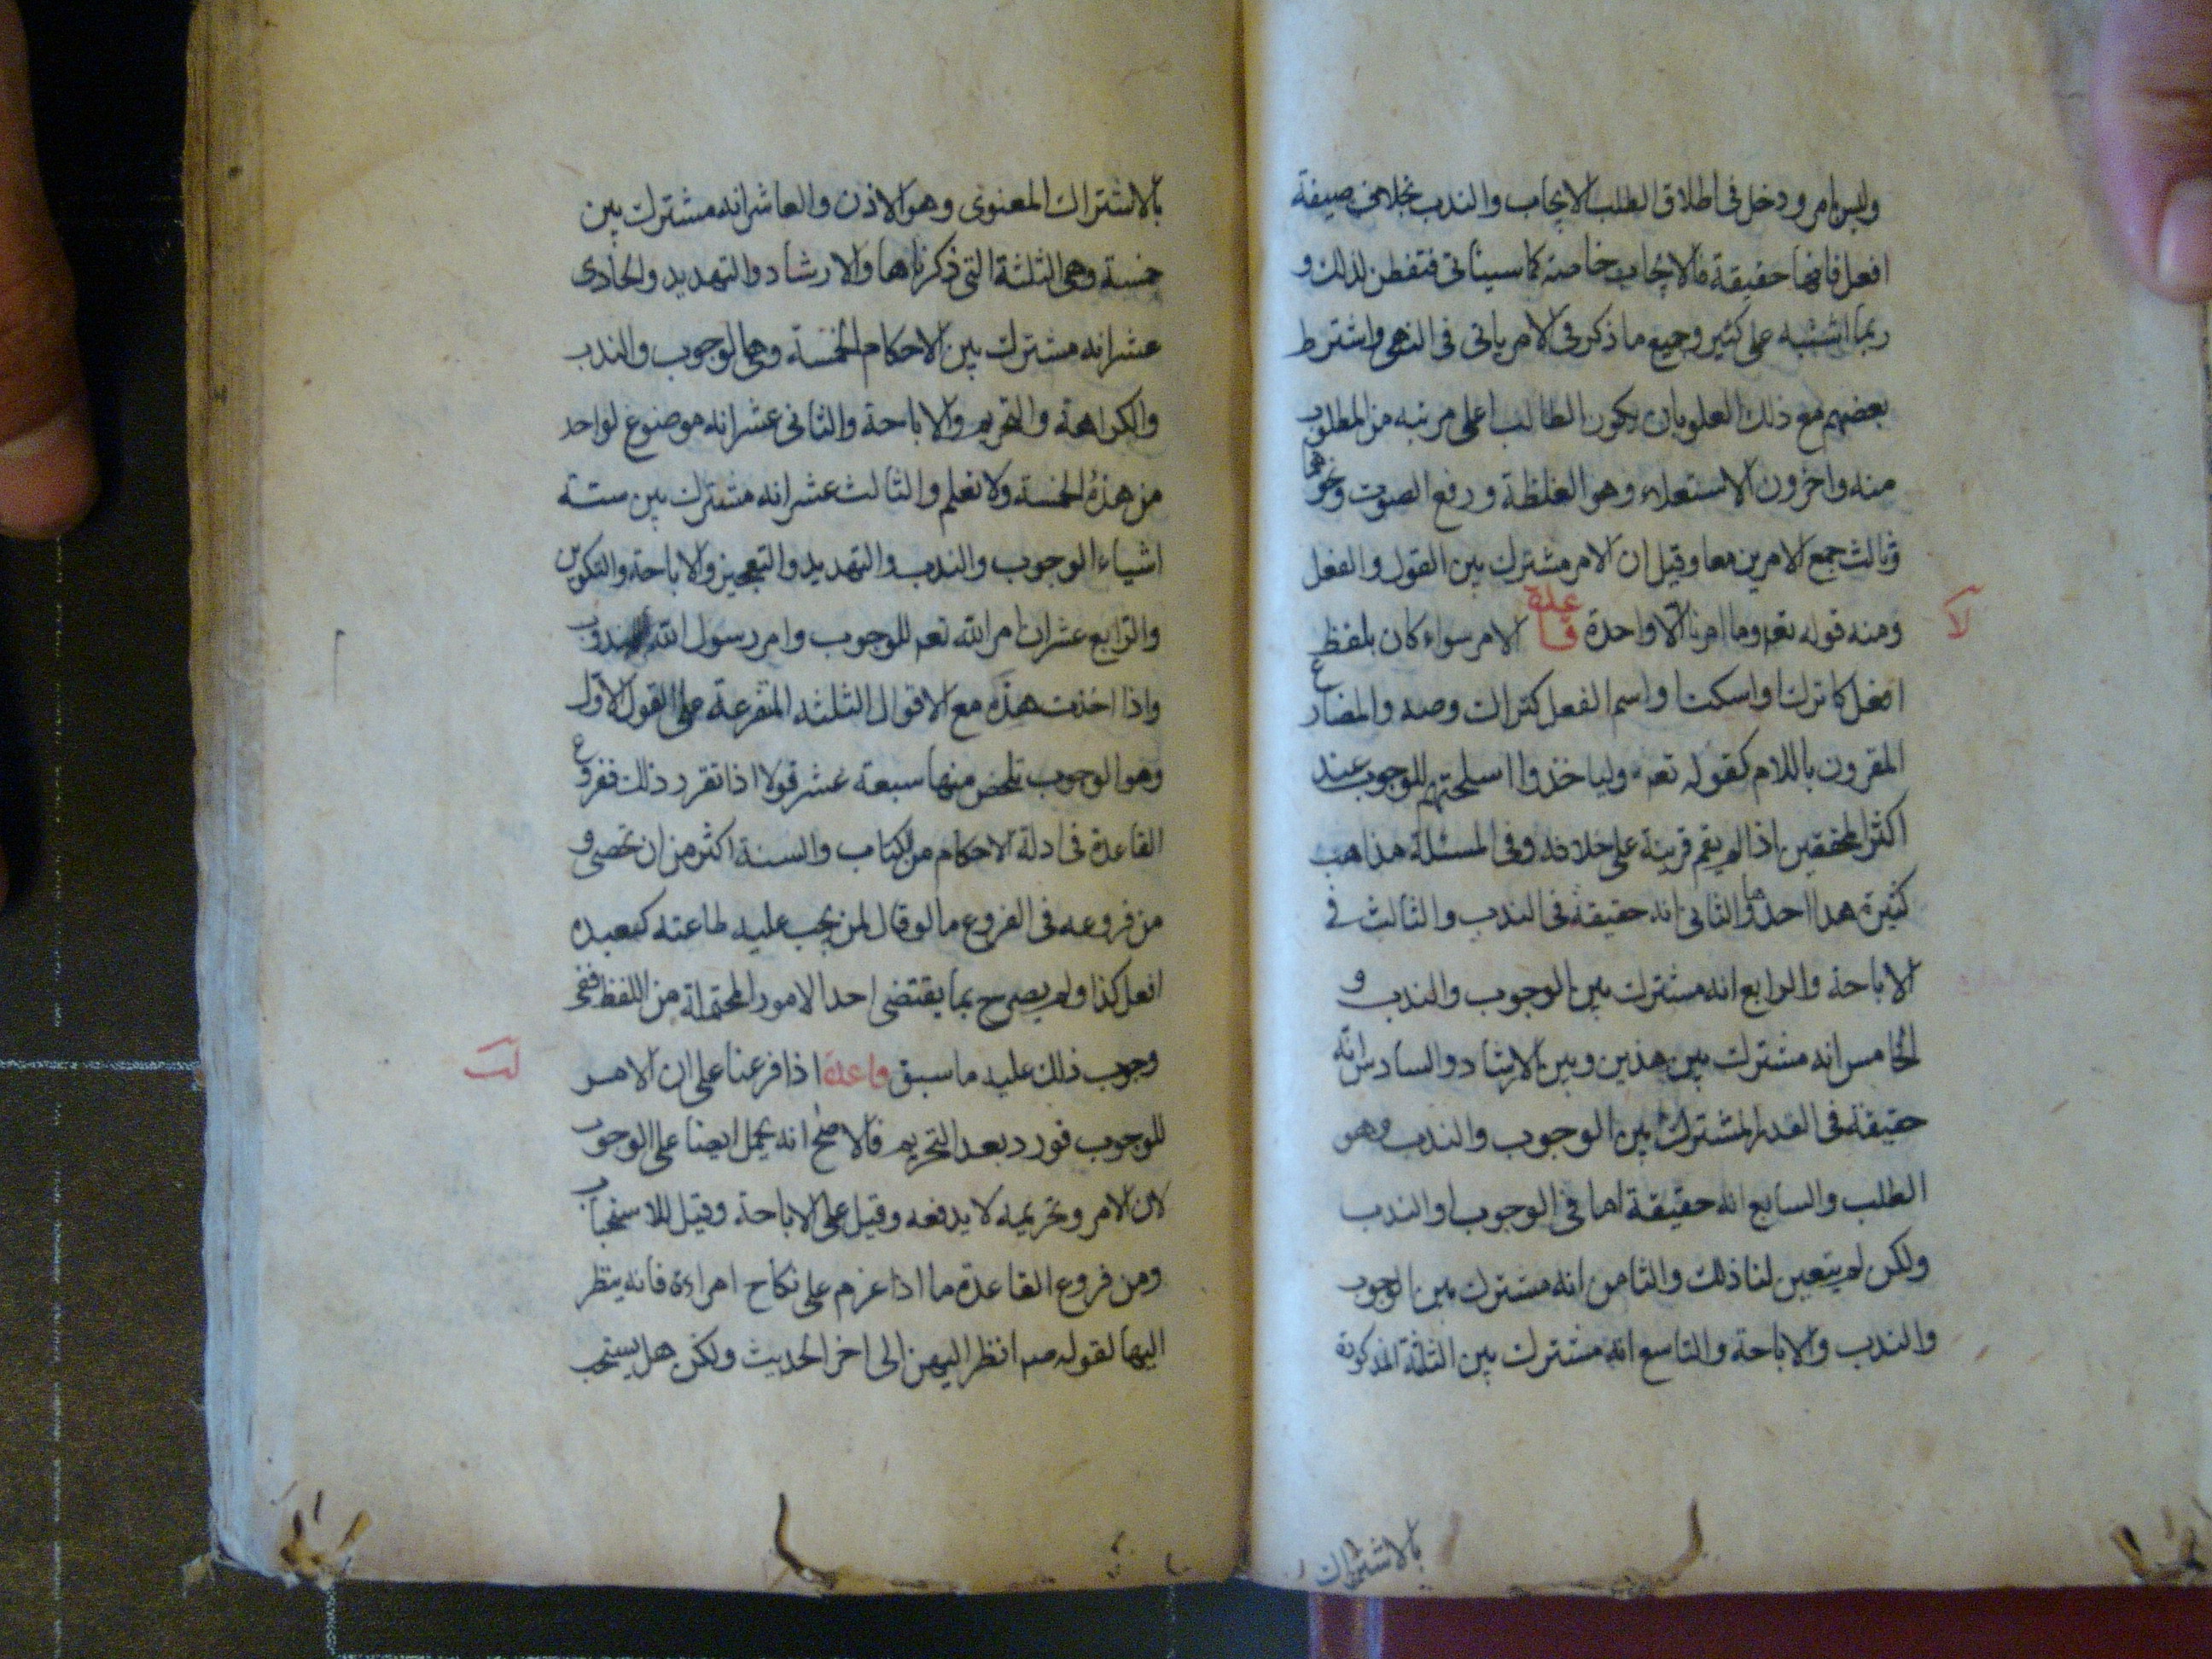 وليس بامر ودخل في اطلاق الطلب الايجاب والندب بخلاف صيغة
افعل فانها حقيقة فالايجاب خاصة كما سيئاتي فتفطن لذلك و
ربما اشتبه على كثير وجميع ما ذكر في الامر ياتي في النهي واشترط
بعضهم مع ذلك العلو بان يكون الطالب اعلى مرتبه من المطلوب
منه واخرون الاستعلاء وهو الغلظة ورفع الصوت ونحوهما
وثالث جمع الامرين معا وقيل ان الامر مشترك بين القول والفعل
ومنه قوله تعم وما امرنا الا واحدة قاعدة الامر سواء كان بلفظ
لا
افعل كاترك او اسكت او اسم الفعل كتراك وصه والمضارع
المقرون باللام كقوله تعم وليا خذوا اسلحتهم للوجوب عند
اكثر المحققين اذا لم يقم قرينة على خلافه وفي المسئلة مذاهب
كثيرة هذا احدها والثاني انه حقيقة في الندب والثالث في
الاباحة والرابع انه مشترك بين الوجوب والندب و
الخامس انه مشترك بين هذين وبين الارشاد والسادس انه
حقيقة في القدر المشترك بين الوجوب والندب وهو
الطلب والسابع انه حقيقة اما في الوجوب او الندب
ولكن لم يتعين لنا ذلك والثامن انه مشترك بين الوجوب
والندب والاباحة والتاسع انه مشترك بين الثلثة المذكورة
بالاشتراك
بالاشتراك المعنوي وهو الاذن والعاشر انه مشترك بين
خمسة وهي الثلثة التي ذكرناها والارشاد والتهديد والحادي
عشر انه مشترك بين الاحكام الخمسة وهي الوجوب والندب
والكراهة والتحريم والاباحة والثاني عشر انه موضوع لواحد
من هذه الخمسة ولا نعلم والثالث عشر انه مشترك بين ستة
اشياء الوجوب والندب والتهديد والتعجيز والاباحة والتكوين
والرابع عشر ان امر الله تعم للوجوب وامر رسول الله للندب
واذا اخذت هذه مع الاقوال الثلثه المتفرعة على القول الاول
وهو الوجوب تلخص منها سبعة عشر قولا اذا تقرر ذلك ففروع
القاعدة في ادلة الاحكام من الكتاب والسنة اكثر من ان تحصى و
من فروعه في الفروع ما لو قال لمن يجب عليه طاعته كعبده
افعل كذا ولم يصرح بما يقتضى احد الامور المحتملة من اللفظ ففي
وجوب ذلك عليه ما سبق قاعدة اذا فرعنا على ان الامر
لب
للوجوب فورد بعد التحريم فالاصح انه يحمل ايضا على الوجوب
لان الامر وتحريمه لا يدفعه وقيل على الاباحة وقيل للاستحباب
ومن فروع القاعدة ما اذا عزم على نكاح امراءة فانه ينظر
اليها لقوله صم انظر اليهن الى اخر الحديث ولكن هل يستحب